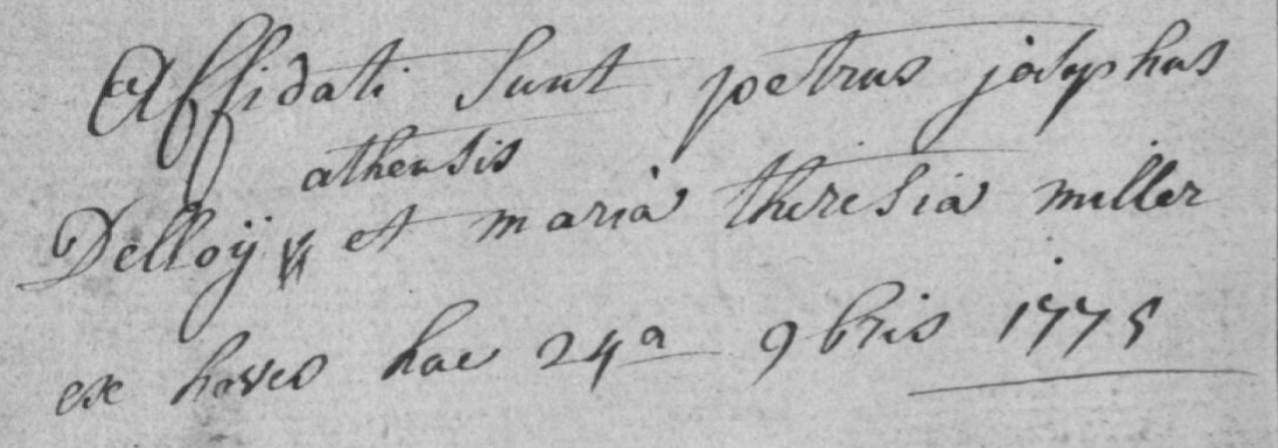 Affidati sunt petrus josephus
athensis
Delloÿ et maria theresia miller
ex haves hac 24a 9bris 1775